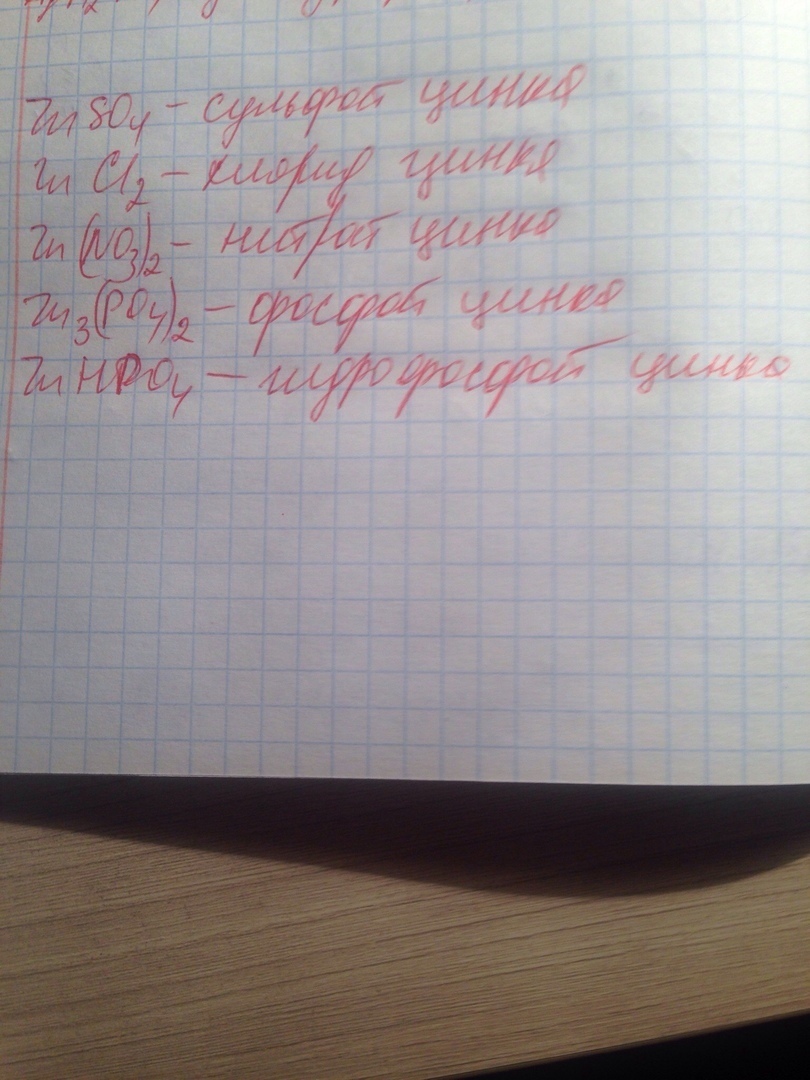 ZnSO₄ – сульфат цинка
ZnCl₂ – хлорид цинка
Zn(NO₃)₂ – нитрат цинка
Zn₃(PO₄)₂ – фосфат цинка
ZnHPO₄ – гидрофосфат цинка